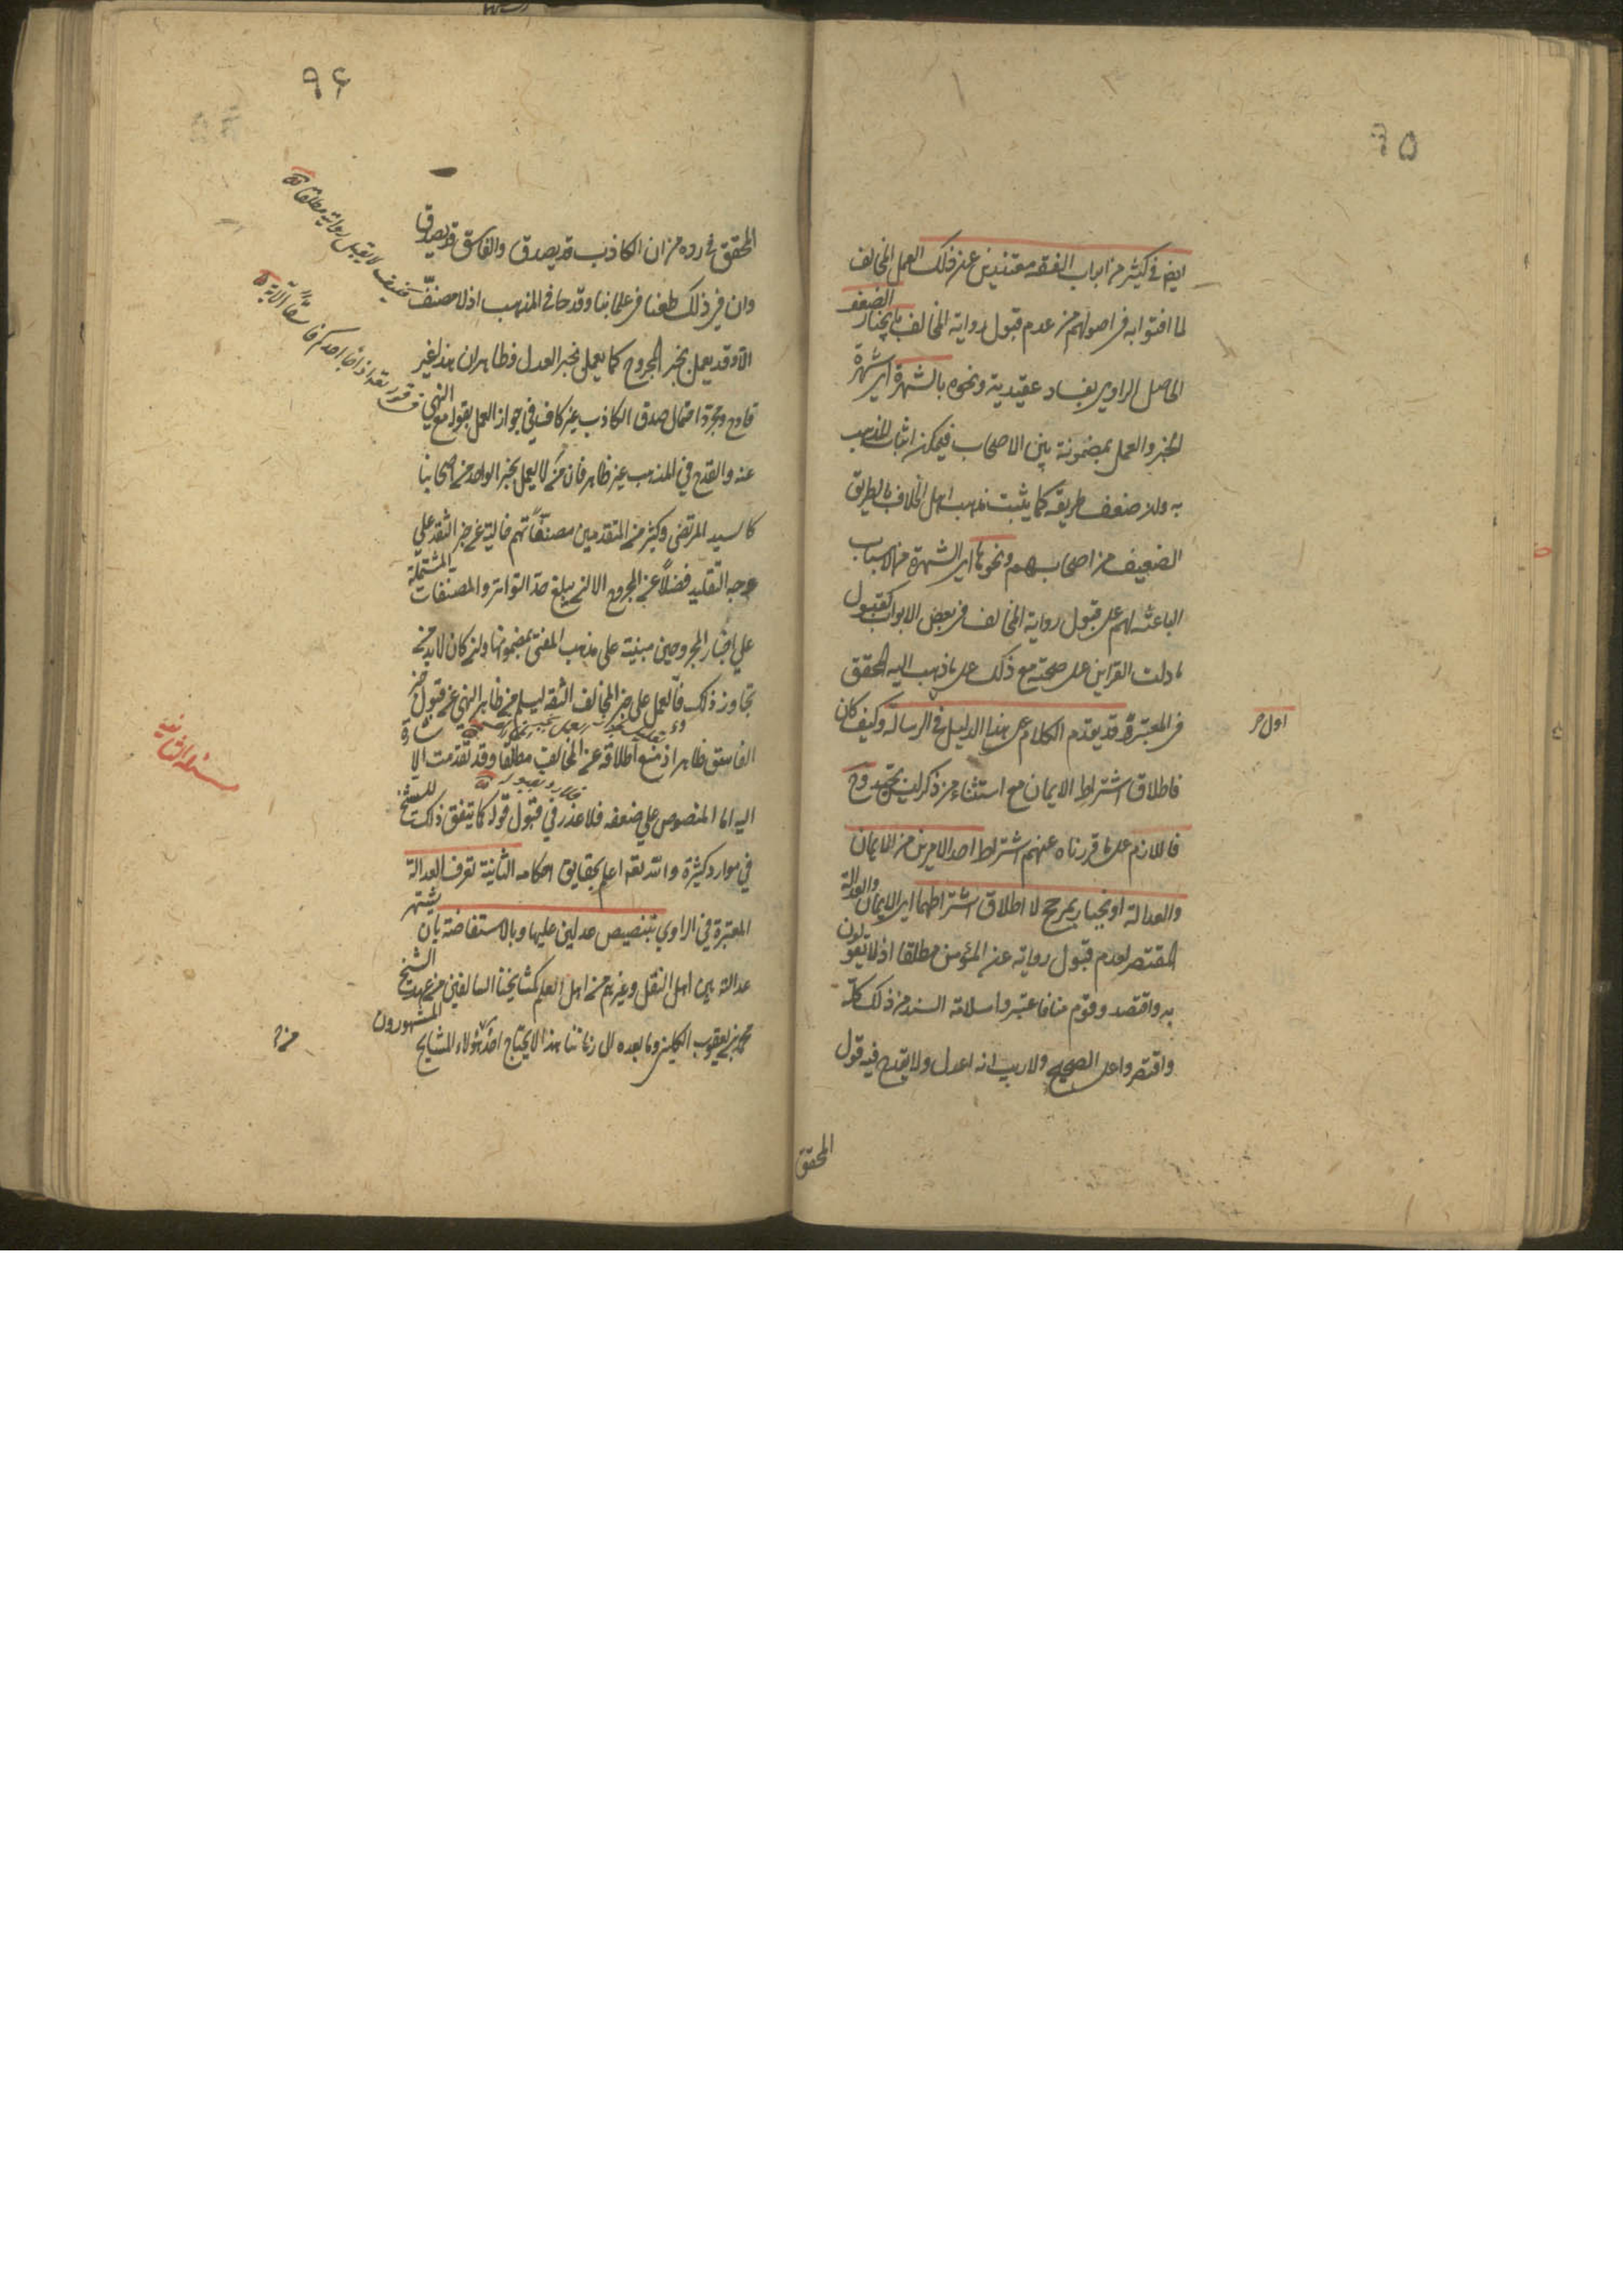 ٩٥
ايض في كثير من ابواب الفقه معتذرين عن ذلك العمل المخالف
لما افتوا به في اصولهم من عدم قبول رواية المخالف بانجبار الضعف
الحاصل للراوي بفساد عقيدته ونحوه بالشهرة اي شهرة
الخبر والعمل بمضمونه بين الاصحاب فيمكن اثبات المذهب
به ولا ضعف طريقه كما يثبت مذهب اهل الخلاف بالطريق
الضعيف من اصحابهم ونحوها اي الشهرة من الاسباب
الباعثة لهم على قبول رواية المخالف في بعض الابواب كقبول
ما دلت القراين على صحته مع ذلك على ما ذهب اليه المحقق
في المعتبر وقد تقدم الكلام على هذا الدليل في الرسالة وكيف كان
فاطلاق اشتراط الايمان مع استثناء من ذكر ليس بجيد وح
فاللازم على ما قررناه عنهم اشتراط احد الامرين من الايمان
والعدالة او انجبار بمرجح لا اطلاق اشتراطهما اي الايمان والعدالة
المقتضي لعدم قبول رواية غير المؤمن مطلقا اذ لا يقولون
به واقتصد وقوم منا فاعتبروا سلامة السند من ذلك كله
واقتصروا على الصحيح ولا ريب انه اعدل ولا يقدح فيه قول
المحقق
اول حر
٩٦
المحقق في رده من ان الكاذب قد يصدق والفاسق قد يصدق
وان في ذلك طعنا في علمائنا وقدحا في المذهب اذ لا مصنف
الا وقد يعمل بخبر المجروح كما يعمل بخبر العدل فظاهر ان هذا غير
قادح ومجرد احتمال صدق الكاذب غير كاف في جواز العمل بقوله مع النهي
عنه والقدح في المذهب غير ظاهر فان من لا يعمل بخبر الواحد من اصحابنا
كالسيد المرتضى وكثير من المتقدمين مصنفاتهم خالية عن خبر الثقة على
وجه التقليد فضلاً عن المجروح الا ان يبلغ حد التواتر والمصنفات المشتملة
على اخبار المجروحين مبنية على مذهب المفتي بمضمونها ولئن كان لا بد من
تجاوز ذلك فالعمل على خبر المخالف الثقة ليسلم من ظاهر النهي عن قبول خبر
الفاسق ظاهرا اذ منع اطلاقه على المخالف مطلقا وقد تقدمت الاشارة
اليه اما المنصوص على ضعفه فلا عذر في قبول قوله كما يتفق ذلك للشيخ
في موارد كثيرة والله تعه اعلم بحقايق احكامه الثانية تعرف العدالة
المعتبرة في الراوي بتنصيص عدلين عليها وبالاستفاضة بان يشتهر
عدالته بين اهل النقل وغيرهم من اهل العلم كمشايخنا السالفين من عهد الشيخ
محمد بن يعقوب الكليني وما بعده الى زماننا هذا لا يحتاج احد هؤلاء المشايخ المشهورون